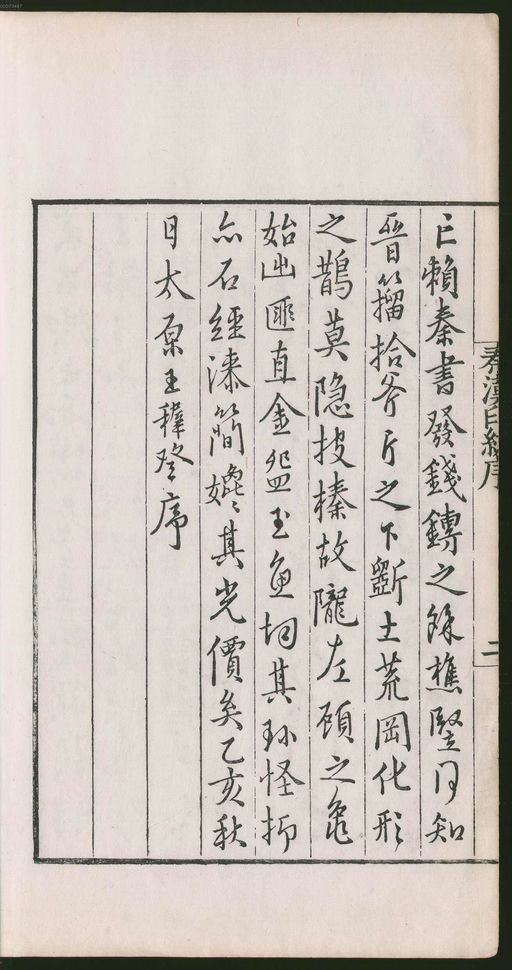 亡賴秦書發錢鏄之餘樵豎同知
晋籀拾斧斤之下斵土荒岡化形
之鵲莫隐披榛故隴左顧之龜
始出匪直金㿻玉魚均其珎怪抑
亦石經漆簡媲〻其光價矣乙亥秋
日太原王穉登序
秦漢印統序
二